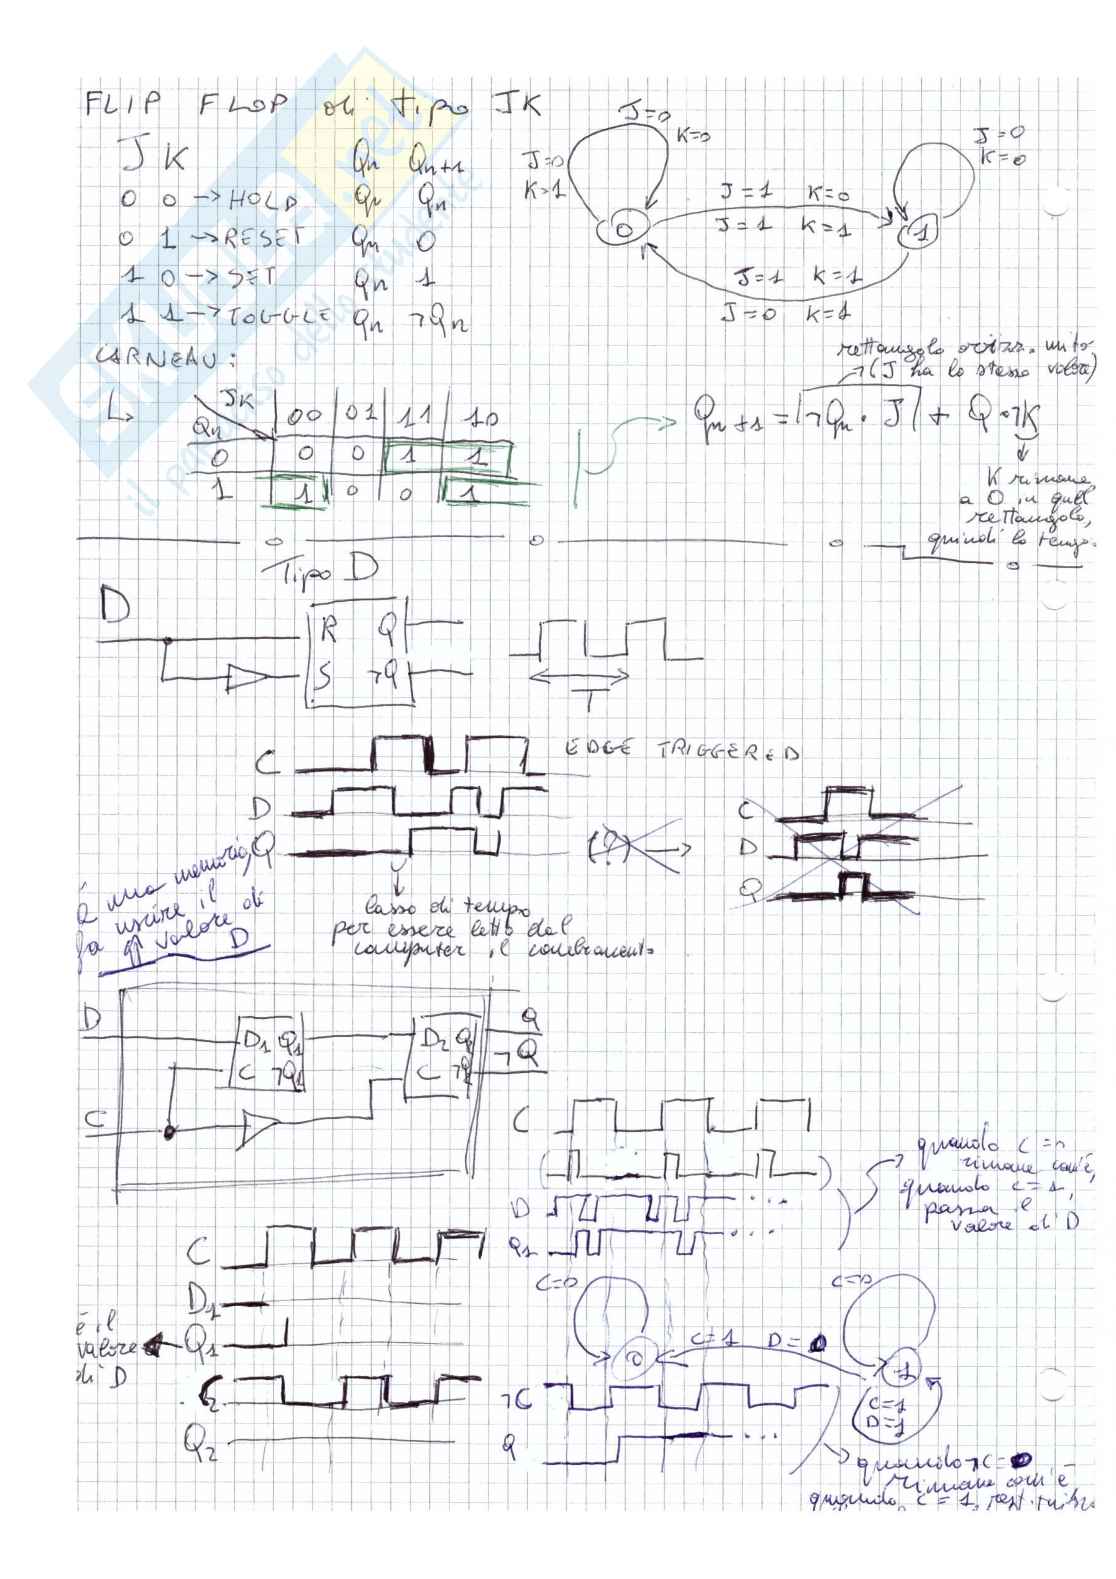 FLIP FLOP di tipo JK
J K Qn Qn+1
0 0 → HOLD Qn Qn
0 1 → RESET Qn 0
1 0 → SET Qn 1
1 1 → TOGGLE Qn ¬Qn
J=0
K=0
J=0
K=1
J=1 K=0
J=1 K=1
J=0
K=0
0
1
J=1 K=1
J=0 K=1
CARNEAU:
JK 00 01 11 10
Qn
0 0 0 1 1
1 1 0 0 1
rettangolo orizz. unito
(J ha lo stesso valore)
Qn+1 = ¬Qn · J + Q · ¬K
K rimane
a 0 in quel
rettangolo,
quindi lo tengo.
Tipo D
D
R Q
S ¬Q
T
EDGE TRIGGERED
C
D
Q
(?)
C
D
Q
è una memoria,
fa uscire il
valore di
D
lasso di tempo
per essere letto dal
computer il cambiamento
D
D1 Q1
C ¬Q1
D2 Q
C ¬Q
Q
¬Q
C
C
D
Q1
quando C=0
rimane com'è,
quando C=1,
passa il
valore di D
C
D1
Q1
è il
valore
di D
C2
Q2
C=0
C=0
C=1 D=0
0
1
C=1
D=1
¬C
Q
quando ¬C=0
rimane com'è
quando C=1,